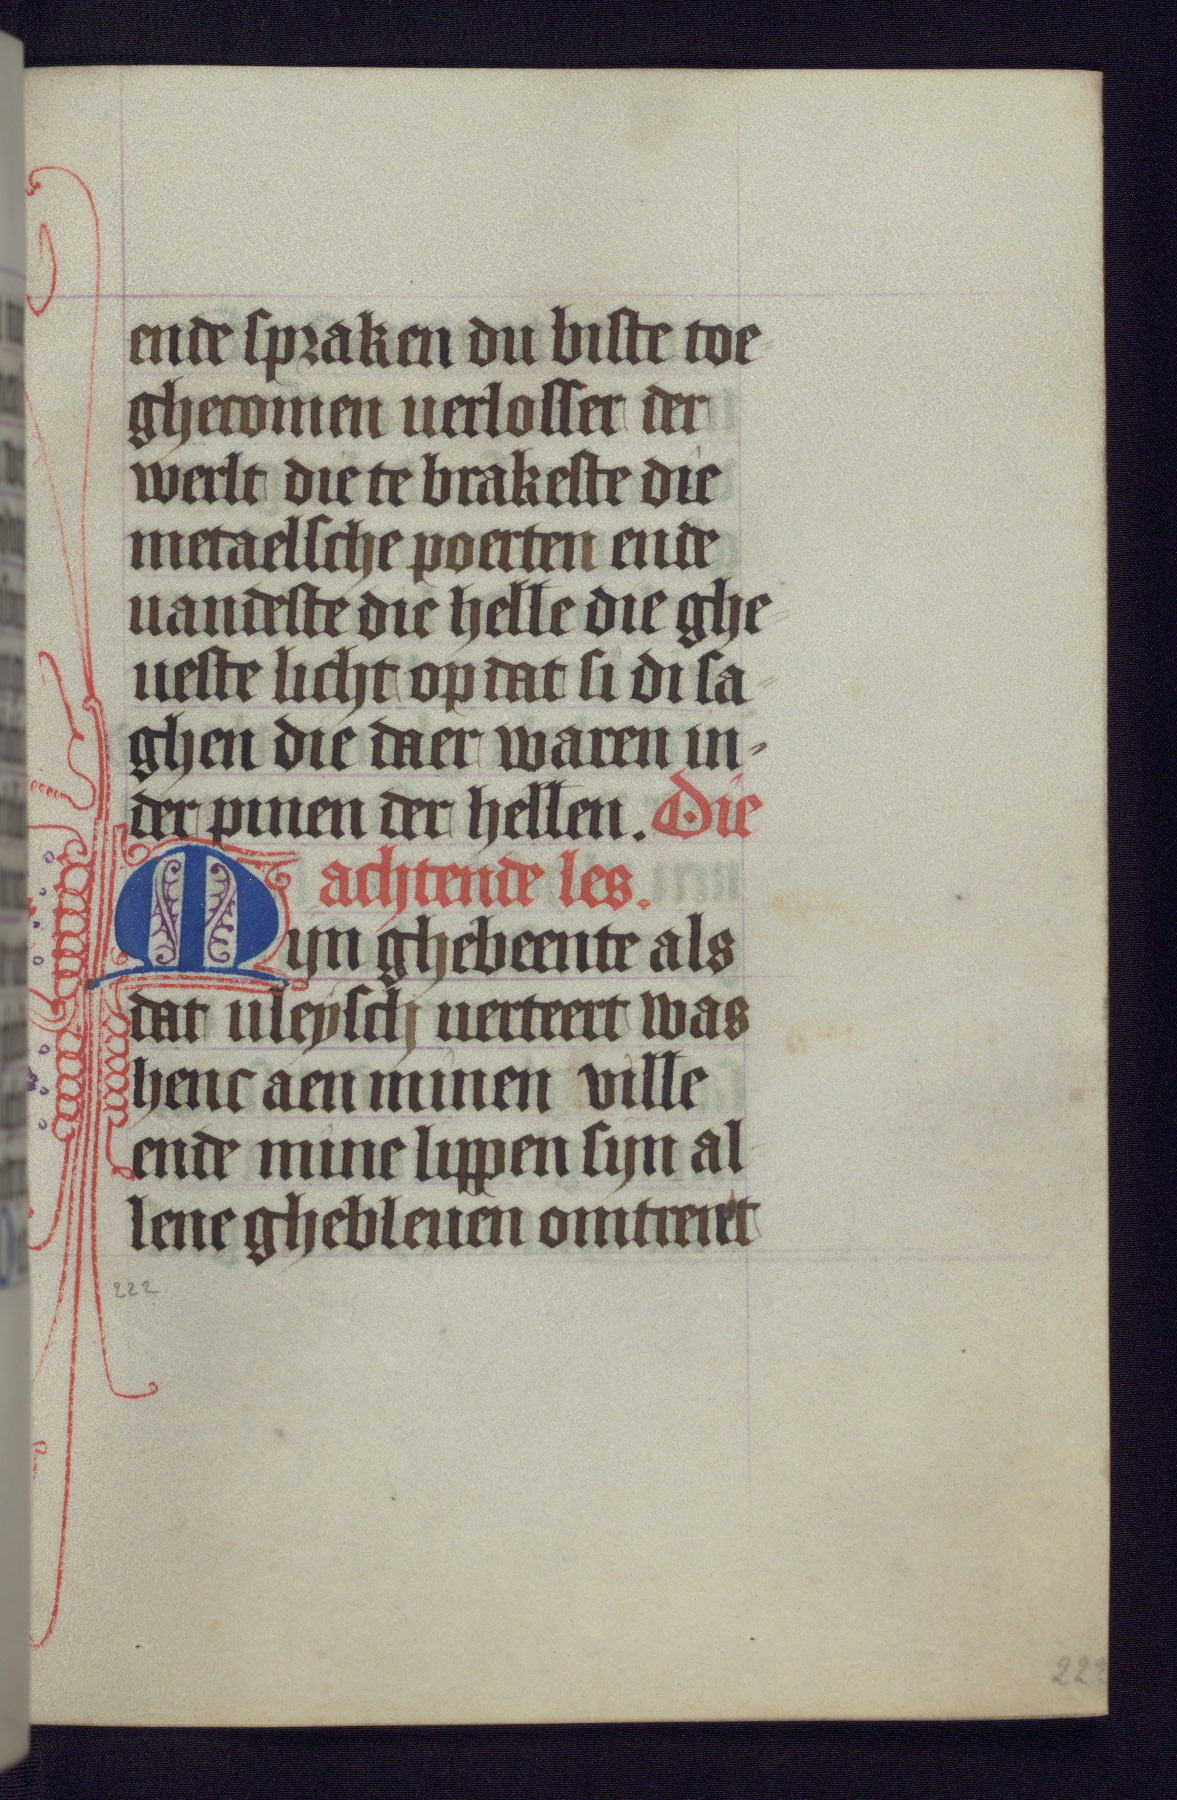 ende spraken du biste toe
ghecomen uerlosser der
werlt die te brakeste die
metaelsche poerten ende
uandeste die helle die ghe
ueste licht op dat si di sa
ghen die daer waren in
der pinen der hellen. Die
achtende les.
Mijn ghebeente als
dat uleysch uerteert was
henc aen minen ville
ende mine lippen sijn al
lene ghebleuen omtrent
222
222